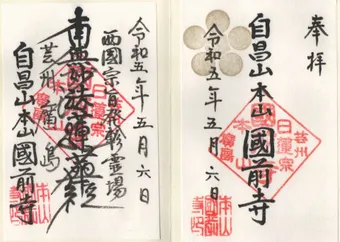 奉拝
令和五年五月六日
自昌山本山國前寺
芸州
日蓮宗
廣島
令和五年五月六日
西國宗門史跡霊場
南無妙法蓮華経
芸州廣島
自昌山本山國前寺
日蓮宗